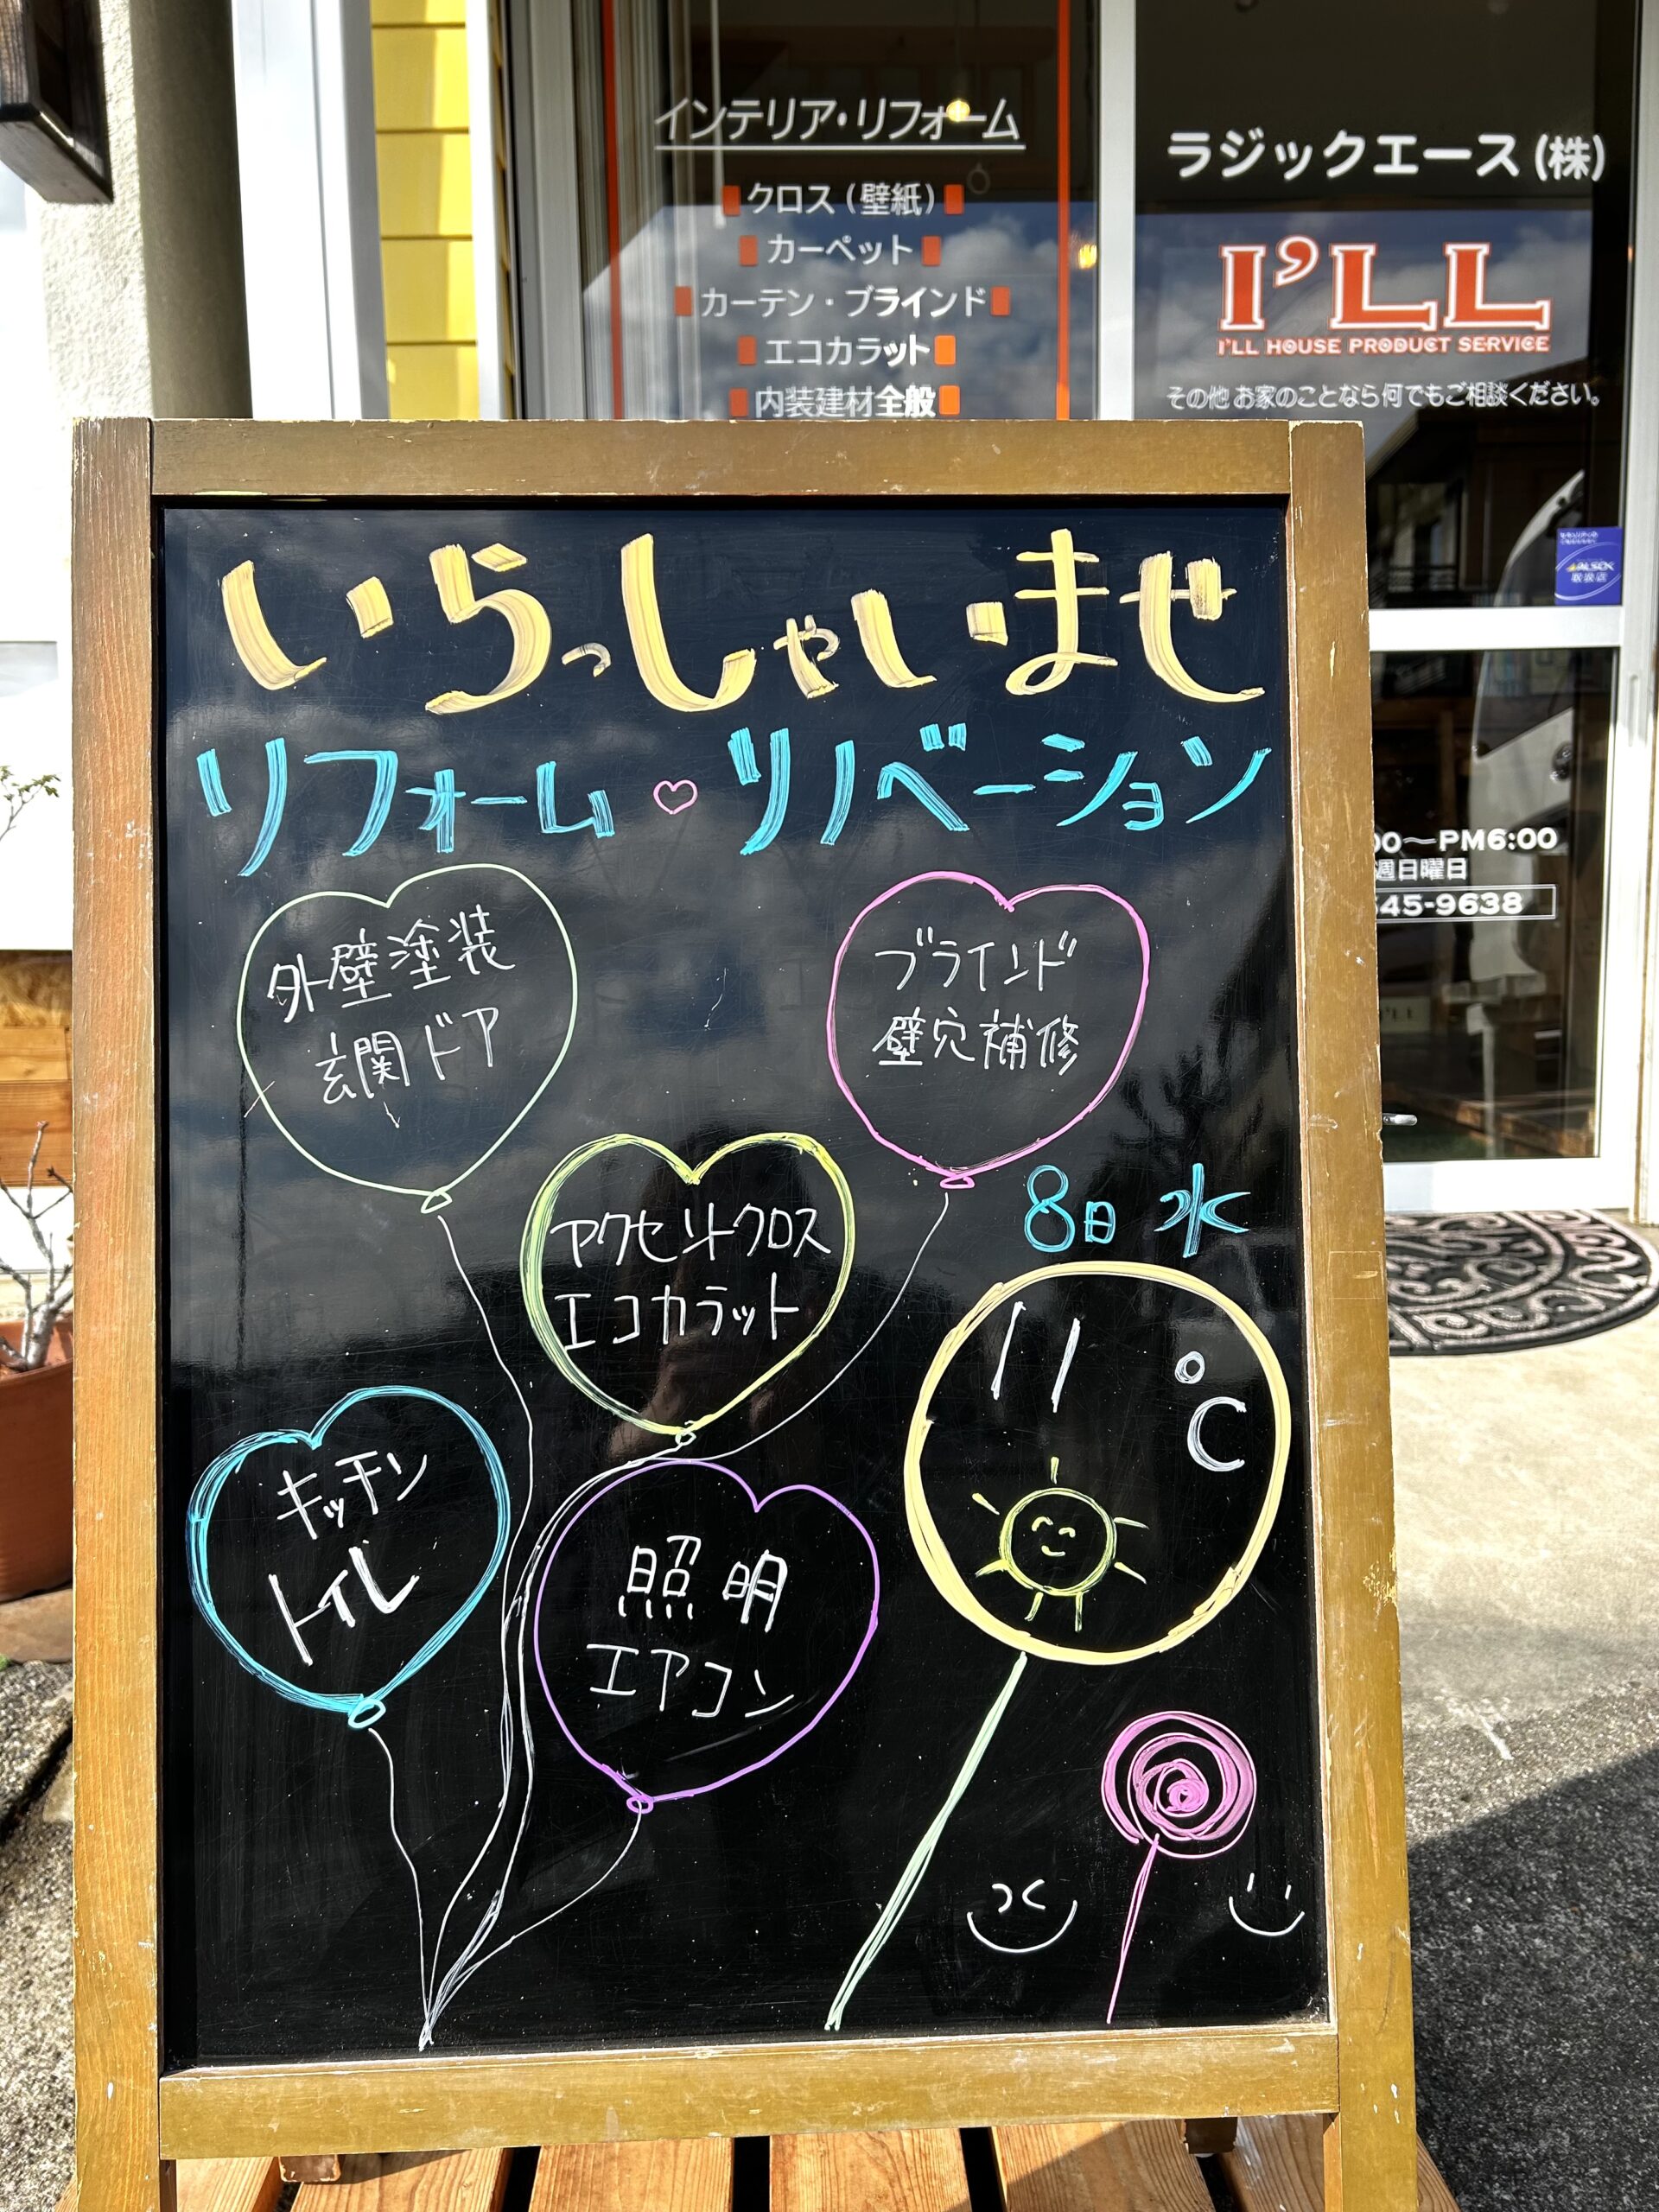 インテリア・リフォーム
クロス(壁紙)
カーペット
カーテン・ブラインド
エコカラット
内装建材全般
ラジックエース(株)
I'LL
I'LL HOUSE PRODUCT SERVICE
その他お家のことなら何でもご相談ください。
ALSOK
取扱店
00〜PM6:00
週日曜日
45-9638
いらっしゃいませ
リフォーム♡リノベーション
外壁塗装
玄関ドア
ブラインド
壁穴補修
アクセントクロス
エコカラット
8日 水
11℃
キッチン
トイレ
照明
エアコン